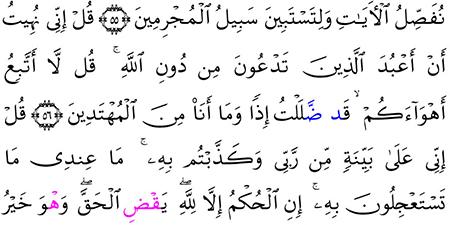 نُفَصِّلُ ٱلۡأٓيَٰتِ وَلِتَسۡتَبِينَ سَبِيلُ ٱلۡمُجۡرِمِينَ ۝٥٥ قُلۡ إِنِّي نُهِيتُ
أَنۡ أَعۡبُدَ ٱلَّذِينَ تَدۡعُونَ مِن دُونِ ٱللَّهِۚ قُل لَّآ أَتَّبِعُ
أَهۡوَآءَكُمۡ ۙ قَد ضَّلَلۡتُ إِذٗا وَمَآ أَنَا۠ مِنَ ٱلۡمُهۡتَدِينَ ۝٥٦ قُلۡ
إِنِّي عَلَىٰ بَيِّنَةٖ مِّن رَّبِّي وَكَذَّبۡتُم بِهِۦۚ مَا عِندِي مَا
تَسۡتَعۡجِلُونَ بِهِۦٓۚ إِنِ ٱلۡحُكۡمُ إِلَّا لِلَّهِۖ يَقۡضِ ٱلۡحَقَّۖ وَهۡوَ خَيۡرُ